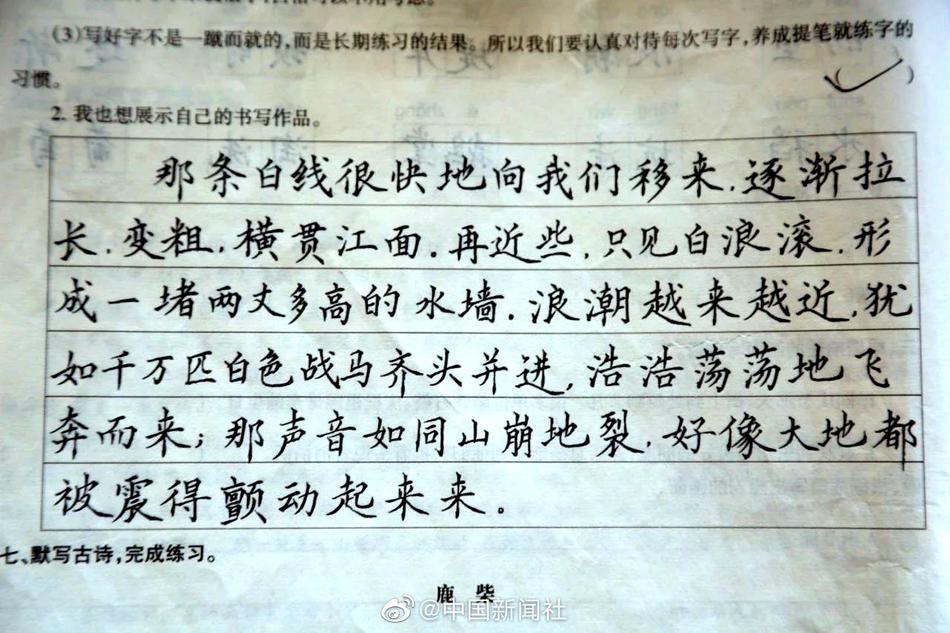 (3)写好字不是一蹴而就的,而是长期练习的结果。所以我们要认真对待每次写字,养成提笔就练字的
习惯。 (✓)
2. 我也想展示自己的书写作品。
那条白线很快地向我们移来.逐渐拉
长.变粗.横贯江面.再近些.只见白浪滚.形
成一堵两丈多高的水墙.浪潮越来越近.犹
如千万匹白色战马齐头并进,浩浩荡荡地飞
奔而来;那声音如同山崩地裂.好像大地都
被震得颤动起来来。
七、默写古诗,完成练习。
鹿 柴
@中国新闻社